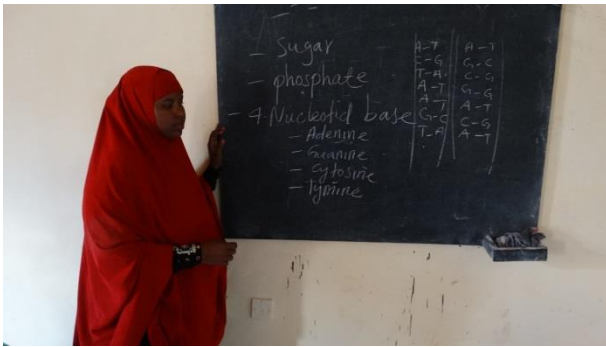 - Sugar
- phosphate
- 4. Nucleotid base
- Adenine
- Guanine
- Cytosine
- Tymine
A-T
C-G
T-A
A-T
A-T
G-C
T-A
A-T
G-C
C-G
G-G
A-T
C-G
A-T